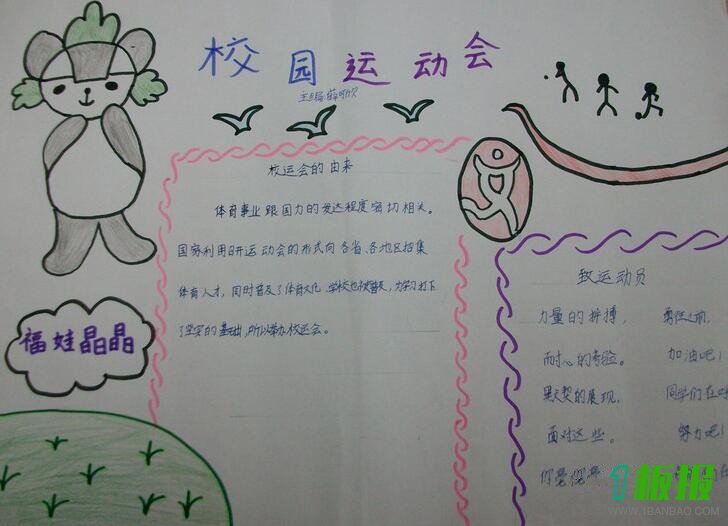 校园运动会
主编:薛
校运会的由来
体育事业跟国力的发达程度密切相关。
国家利用召开运动会的形式向各省、各地区招集
体育人才，同时普及了体育文化，学校也被普及，为学习打下
了坚实的基础，所以举办校运会。
福娃晶晶
致运动员
力量的拼搏， 勇往之前，
耐心的考验。 加油吧！
默契的展现， 同学们在
面对这些。 努力吧！
1板报
WWW.1BANBAO.COM